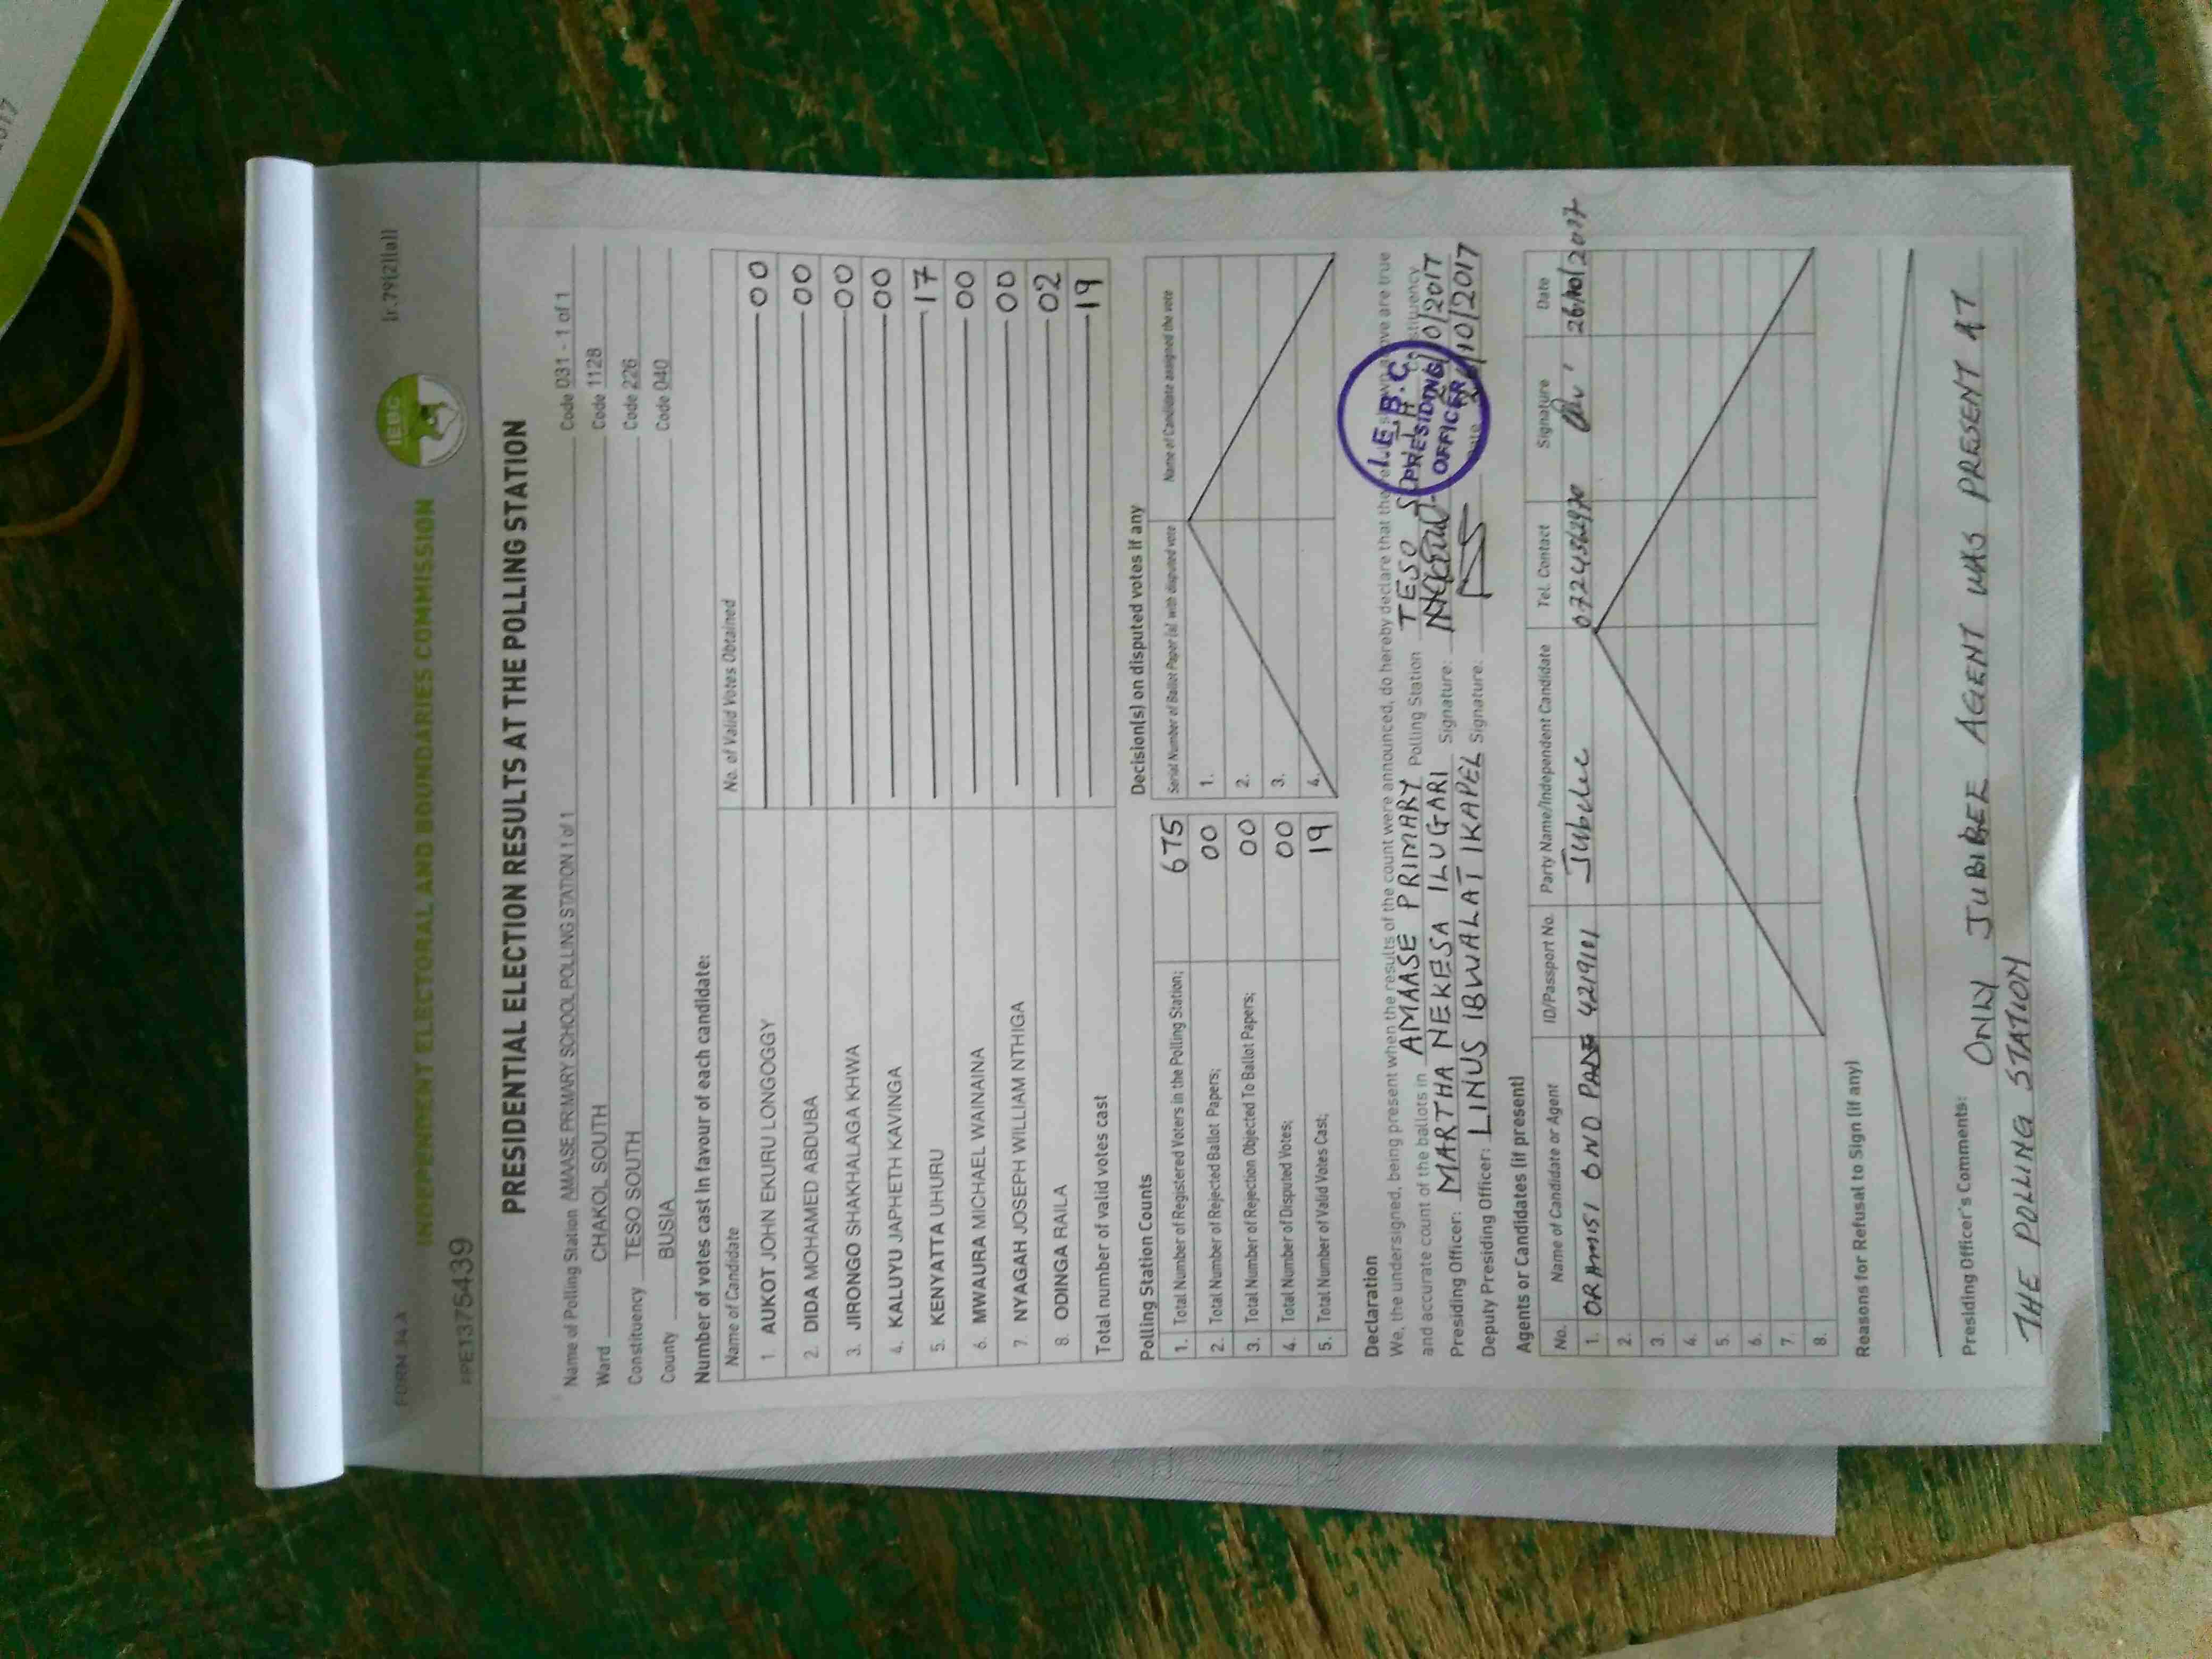 2017
FORM 34 A
(r.79(2)(a))
INDEPENDENT ELECTORAL AND BOUNDARIES COMMISSION
IEBC
PRE1375439
PRESIDENTIAL ELECTION RESULTS AT THE POLLING STATION
Name of Polling Station AMAASE PRIMARY SCHOOL POLLING STATION 1 of 1 Code 031 - 1 of 1
Ward CHAKOL SOUTH Code 1128
Constituency TESO SOUTH Code 226
County BUSIA Code 040
Number of votes cast in favour of each candidate:
Name of Candidate No. of Valid Votes Obtained
1. AUKOT JOHN EKURU LONGOGGY 00
2. DIDA MOHAMED ABDUBA 00
3. JIRONGO SHAKHALAGA KHWA 00
4. KALUYU JAPHETH KAVINGA 00
5. KENYATTA UHURU 17
6. MWAURA MICHAEL WAINAINA 00
7. NYAGAH JOSEPH WILLIAM NTHIGA 00
8. ODINGA RAILA 02
Total number of valid votes cast 19
Polling Station Counts
1. Total Number of Registered Voters in the Polling Station; 675
2. Total Number of Rejected Ballot Papers; 00
3. Total Number of Rejection Objected To Ballot Papers; 00
4. Total Number of Disputed Votes; 00
5. Total Number of Valid Votes Cast; 19
Decision(s) on disputed votes if any
Serial Number of Ballot Paper (s) with disputed vote Name of Candidate assigned the vote
1.
2.
3.
4.
Declaration
We, the undersigned, being present when the results of the count were announced, do hereby declare that the results shown above are true
and accurate count of the ballots in AMAASE PRIMARY Polling Station TESO SOUTH Constituency
Presiding Officer: MARTHA NEKESA ILUGARI Signature: 10/2017
Deputy Presiding Officer: LINUS IBWALAT IKAPEL Signature: Date 10/2017
I.E.B.C.
PRESIDING
OFFICER
Agents or Candidates (if present)
No. Name of Candidate or Agent ID/Passport No. Party Name/Independent Candidate Tel. Contact Signature Date
1. 4219101 Jubilee 26/10/2017
2.
3.
4.
5.
6.
7.
8.
Reasons for Refusal to Sign (if any)
Presiding Officer's Comments: ONLY JUBIREE AGENT WAS PRESENT AT
THE POLLING STATION